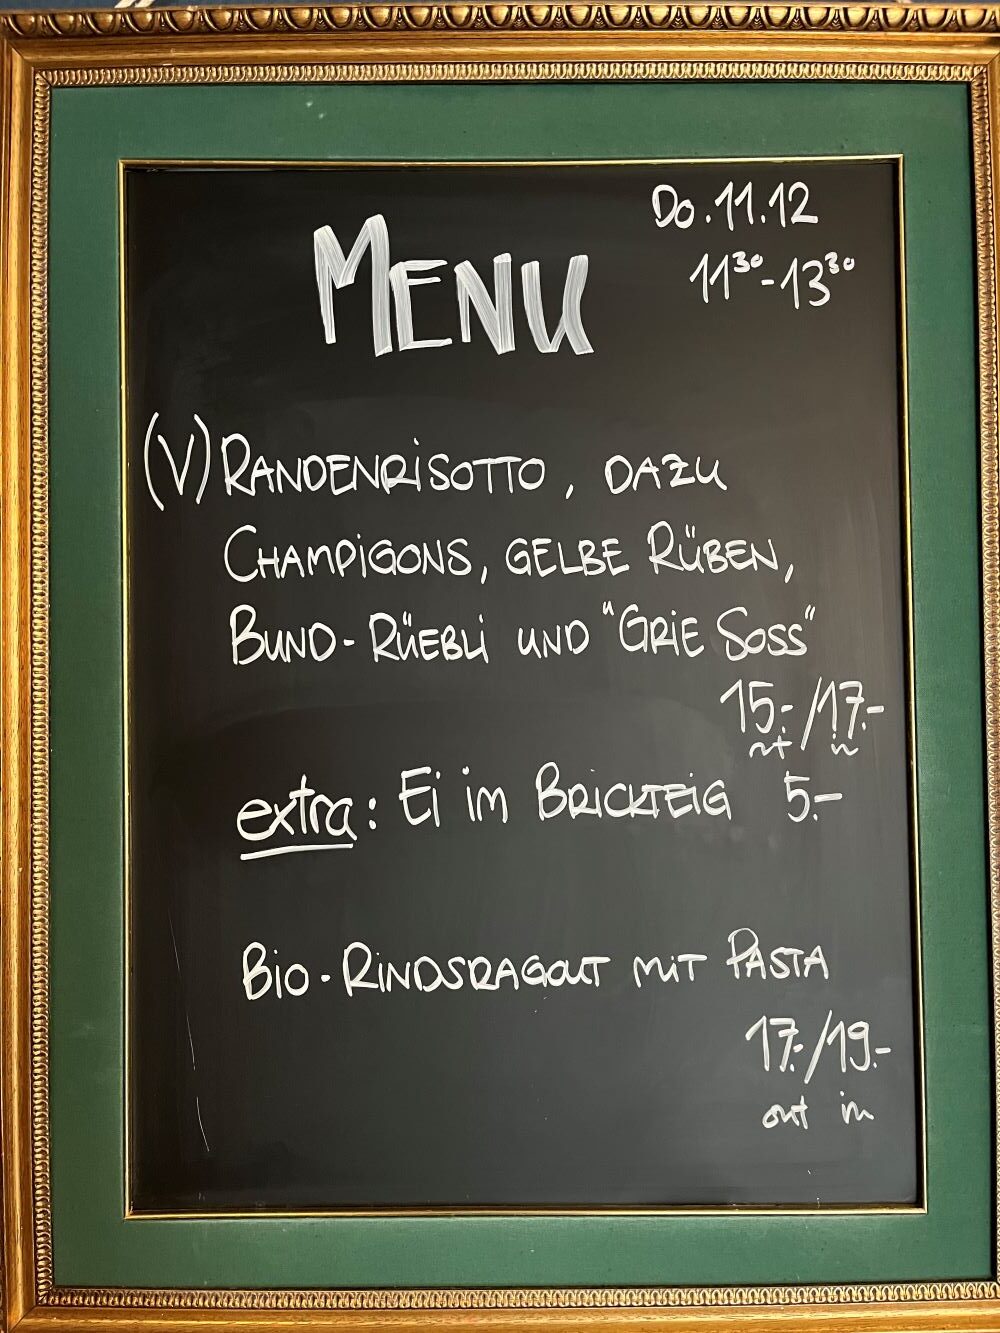 Do. 11.12
11³⁰-13³⁰
MENU
(V) RANDENRISOTTO, DAZU
CHAMPIGONS, GELBE RÜBEN,
BUND-RÜEBLI UND "GRIE SOSS"
15.-/17.-
out in
extra: Ei im BRICKTEIG 5.-
BIO-RINDSRAGOUT MIT PASTA
17.-/19.-
out in